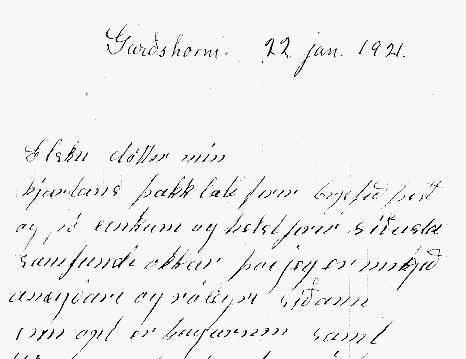 Garðshorni. 22 jan. 1921.
Elsku dóttir min
hjartans þakklæti firir brjefið þitt
og þó einkum og helst firir síðustu
samfundi okkar þvi jeg er mikið
ánægðari og rólegri síðann
enn opt er hugurinn samt